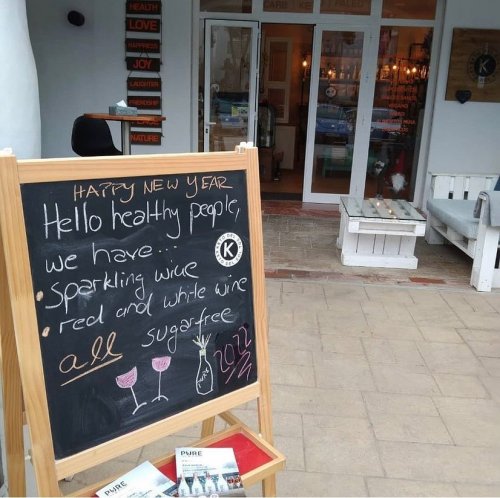 HEALTH
LOVE
HAPPINESS
JOY
LAUGHTER
FRIENDSHIP
PEACE
NATURE
CARB | KETO | PALEO
K
HAPPY NEW YEAR
Hello healthy people,
we have...
sparkling wine
red and white wine
all sugarfree
K
PURE
2022
PURE
PURE